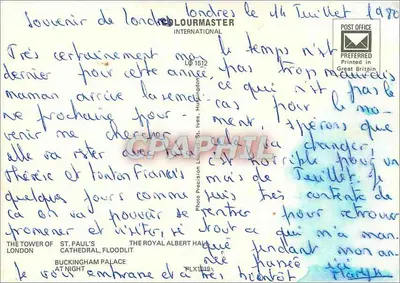 Souvenir de Londres Londres le 14 Juillet 1980
COLOURMASTER
INTERNATIONAL
POST OFFICE
PREFERRED
Printed in
Great Britain
LO 1512
Très certainement mon
dernier pour cette année,
maman arrive la semai-
ne prochaine pour
venir me chercher
elle va rester avec
thérèse et tonton Francis
quelques jours comme
ça on va pouvoir se
promener et visiter, si
le temps n'est
pas trop mauvais
n'est pas le
cas pour le mo-
ment, espérons que
ça va changer,
c'est horrible pour un
mois de Juillet, je
suis très contente de
rentrer pour retrouver
tout ce qui m'a man-
qué pendant mon an-
née passée ici
Je vous embrasse et à très bientôt
CPAPHIL
THE TOWER OF LONDON
ST. PAUL'S CATHEDRAL, FLOODLIT
THE ROYAL ALBERT HALL
BUCKINGHAM PALACE AT NIGHT